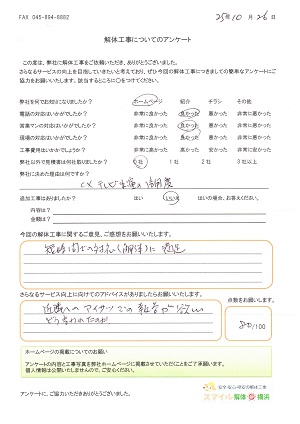 FAX 045-894-8882
25年10月26日
解体工事についてのアンケート
この度は、弊社に解体工事をご依頼いただき、ありがとうございました。
さらなるサービスの向上を目指していきたいと考えており、ぜひ今回の解体工事につきましての簡単なアンケートにご
協力をお願いいたします。該当するところに○をつけてください。
弊社を何でお知りになりましたか？ ホームページ 紹介 チラシ その他
電話の対応はいかがでしたか？ 非常に良かった 良かった 悪かった 非常に悪かった
営業マンの対応はいかがでしたか？ 非常に良かった 良かった 悪かった 非常に悪かった
現場の対応はいかがでしたか？ 非常に良かった 良かった 悪かった 非常に悪かった
工事費用はいかがでしょうか？ 非常に高かった 高かった 安かった 非常に安かった
弊社以外で見積書は何社取りましたか？ 0社 1社 2社 3社以上
弊社に決めた理由は何ですか？
追加工事はありましたか？ はい いいえ はいの場合、お答えください。
内容は？
金額は？
今回の解体工事に関するご意見、ご感想をお願いします。
短時間での
さらなるサービス向上に向けてのアドバイスがありましたらお願いします。
点数をお願いします。
近隣への
80/100
ホームページの掲載についてのお願い
アンケートの内容と工事写真を弊社ホームページに掲載させていただくことをご了承願います。
個人情報は公開いたしませんので、ご安心ください。
アンケートに、ご協力いただきありがとうございました。
安全・安心・格安の解体工事
スマイル解体 横浜